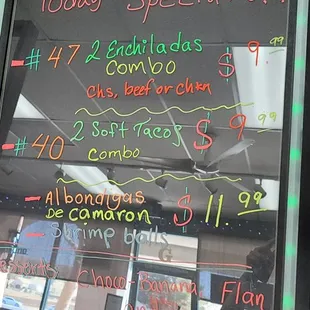 Today Special
- # 47 2 Enchiladas $ 9.99
Combo
chs, beef or chkn
- # 40 2 Soft Tacos $ 9 99
combo
- Albondigas
De camaron $ 11 99
- Shrimp balls
Choco- Banana Flan